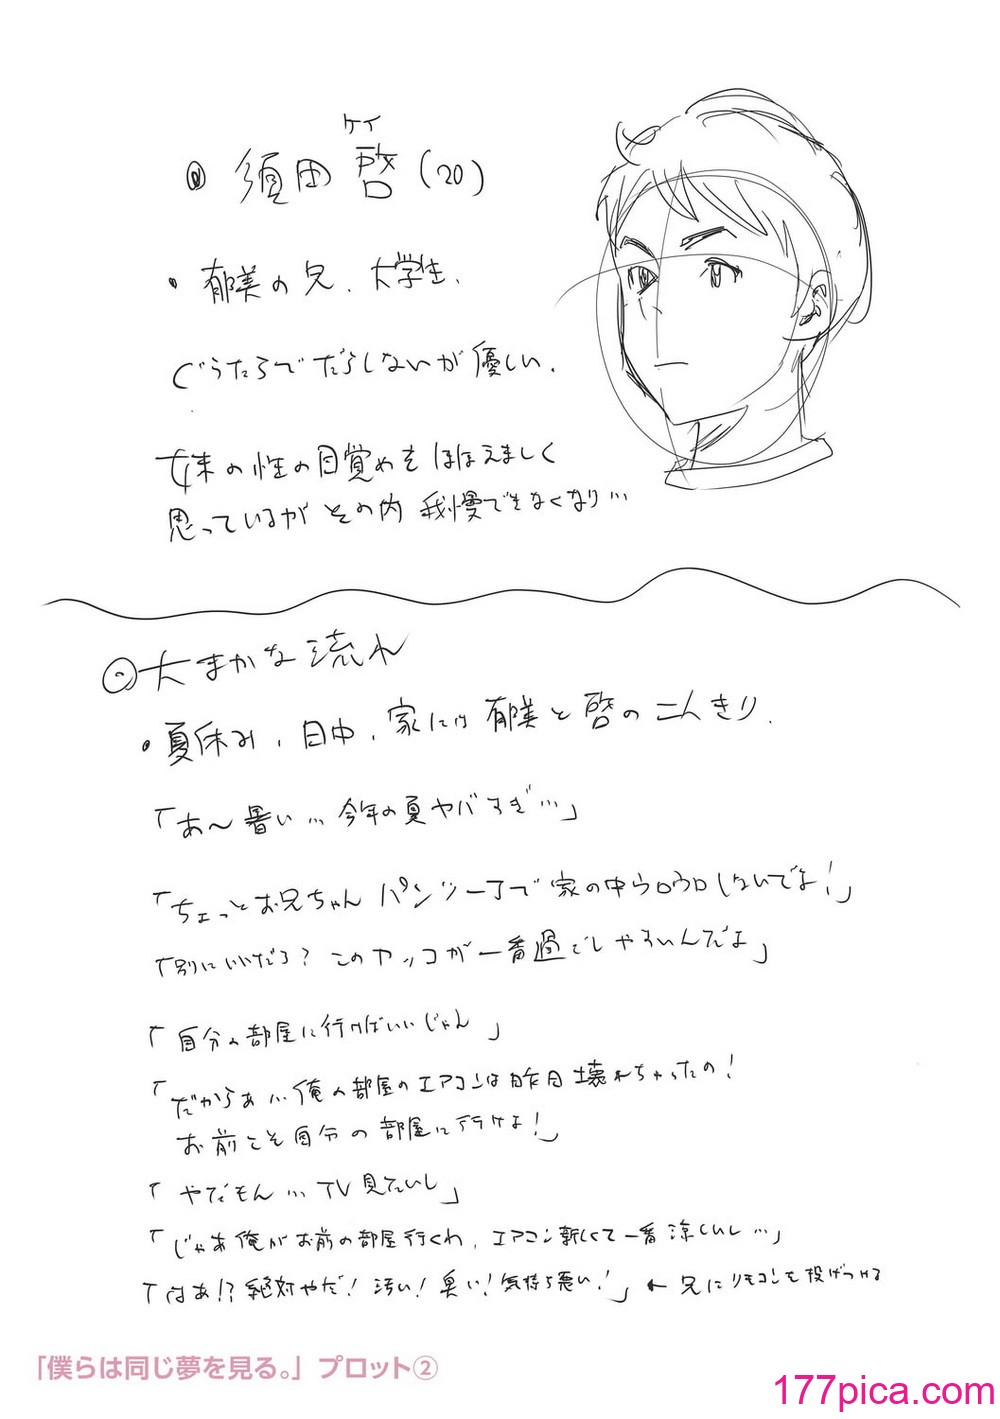 ケイ
◎ 須田 啓 (20)
・郁美の兄、大学生、
ぐうたらでだらしないが優しい、
妹の性の目覚めをほほえましく
思っているがその内我慢できなくなり…
◎大まかな流れ
・夏休み、日中、家には郁美と啓の二人きり、
「あ〜暑い…今年の夏ヤバすぎ…」
「ちょっとお兄ちゃんパンツ一丁で家の中ウロウロしないでよ!」
「別にいいだろ?このカッコが一番過ごしやすいんだよ」
「自分の部屋に行けばいいじゃん」
「だからぁ…俺の部屋のエアコンは昨日壊れちゃったの!
お前こそ自分の部屋に行けよ!」
「やだもん…TV見たいし」
「じゃあ俺がお前の部屋行くわ、エアコン新しくて一番涼しいし…」
「はあ!?絶対やだ!汚い!臭い!気持ち悪い!」←兄にリモコンを投げつける
「僕らは同じ夢を見る。」プロット②
177pica.com